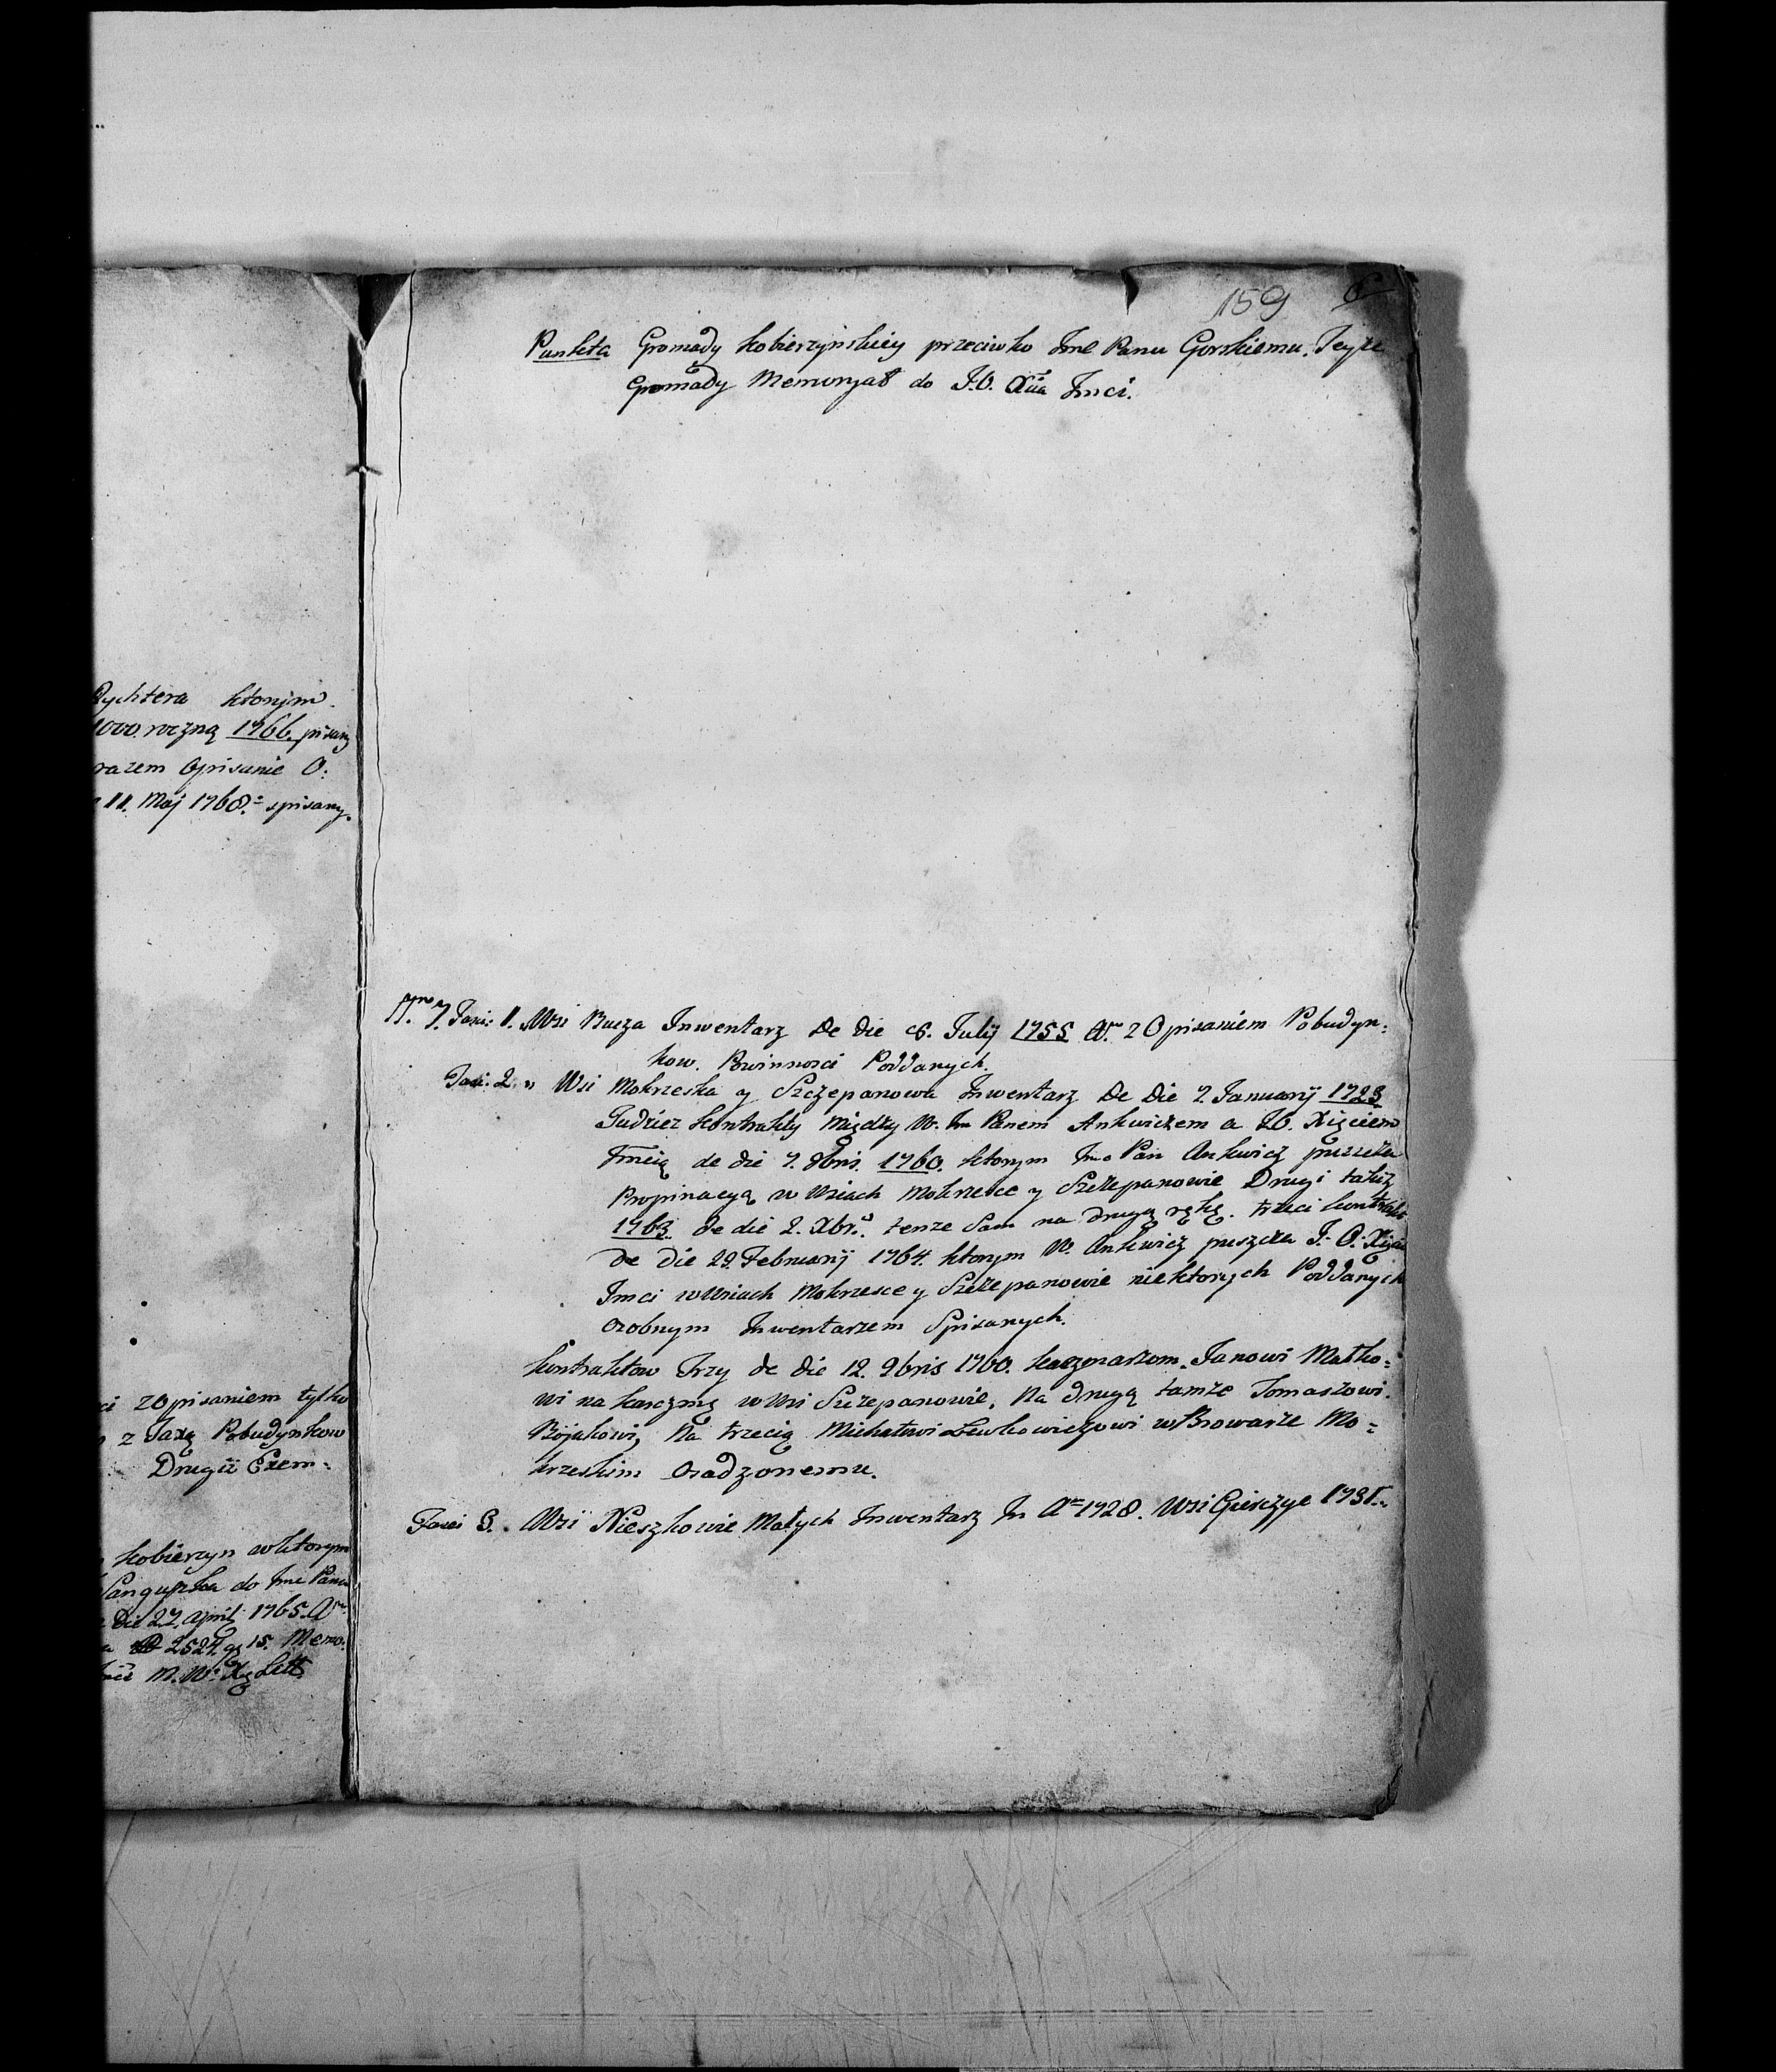 Rychtera ktorym
1000. roczną 1766. pisany
razem Opisanie O:
11. Maj 1768.= spisany.
ci z opisaniem tylko
z Taxą Pobudynkow
Drugii Exem:
Kobierzyn w ktorym
Sanguszka do Jmc Pana
Die 27. april 1765. Ao
2524. gr 15. Memo.
M. W. Xa Litt.
159
Punkta Gromady Kobierzynskiey przeciwko Jmc Panu Gorskiemu. Teyże
Gromady Memoryał do J.O. Xcia Jmci.
Nro 7. Fasci: 1. Wsi Bucza Inwentarz De die 6. Julij 1755 Ao. z Opisaniem Pobudyn:
kow. Powinnosci Poddanych.
Fasci: 2. " Wsi Mokrzeska y Szczepanowa Inwentarz De Die 2 Januarij 1723
Tudziez Kontrakty między W. Jm Panem Ankwiczem a J.O. Xięciem
Jmcią de die 7. 8bris. 1760. ktorym Jmc Pan Ankwicz puszcza
Propinacyą w Wsiach Mokrzesce y Szczepanowie Drugi takiż
1763. de die 2. Xbris. tenze Sam na drugą rękę. trzeci kontrakt
de Die 29. Februarij 1764. ktorym W. Ankwicz puszcza J.O. Xięciu
Jmci w Wsiach Mokrzesce y Szczepanowie niektorych Poddanych
Osobnym Inwentarzem Spisanych.
Kontraktow Trzy de Die 12. 9bris 1760. karczmarzom. Janowi Matko:
wi na karczmę w Wsi Szczepanowie, Na drugą tamze Tomaszowi
Bójakowi, Na trzecią Michałowi Lewkowiczowi w Browarze Mo=
krzeskim Osadzonemu.
Fasci 3. Wsi Nieszkowie Małych Inwentarz In Ao 1728. Wsi Gierczyc 1731.